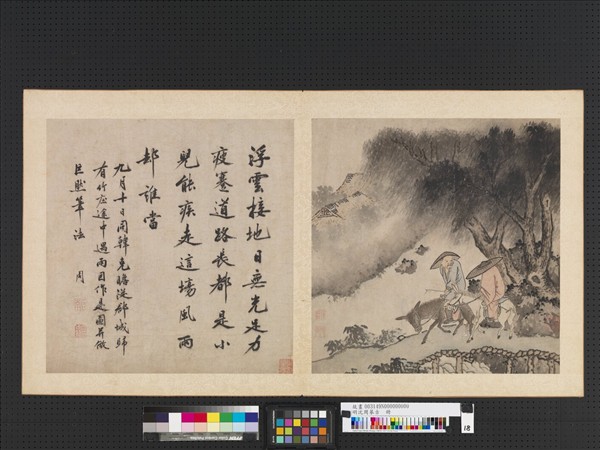 浮雲接地日無光足力
疲蹇道路長都是小
兒能疾走這場風雨
却誰當
九月十日聞韓克贍從都城歸
有竹莊途中遇雨因作是圖并倣
巨然筆法 周
18